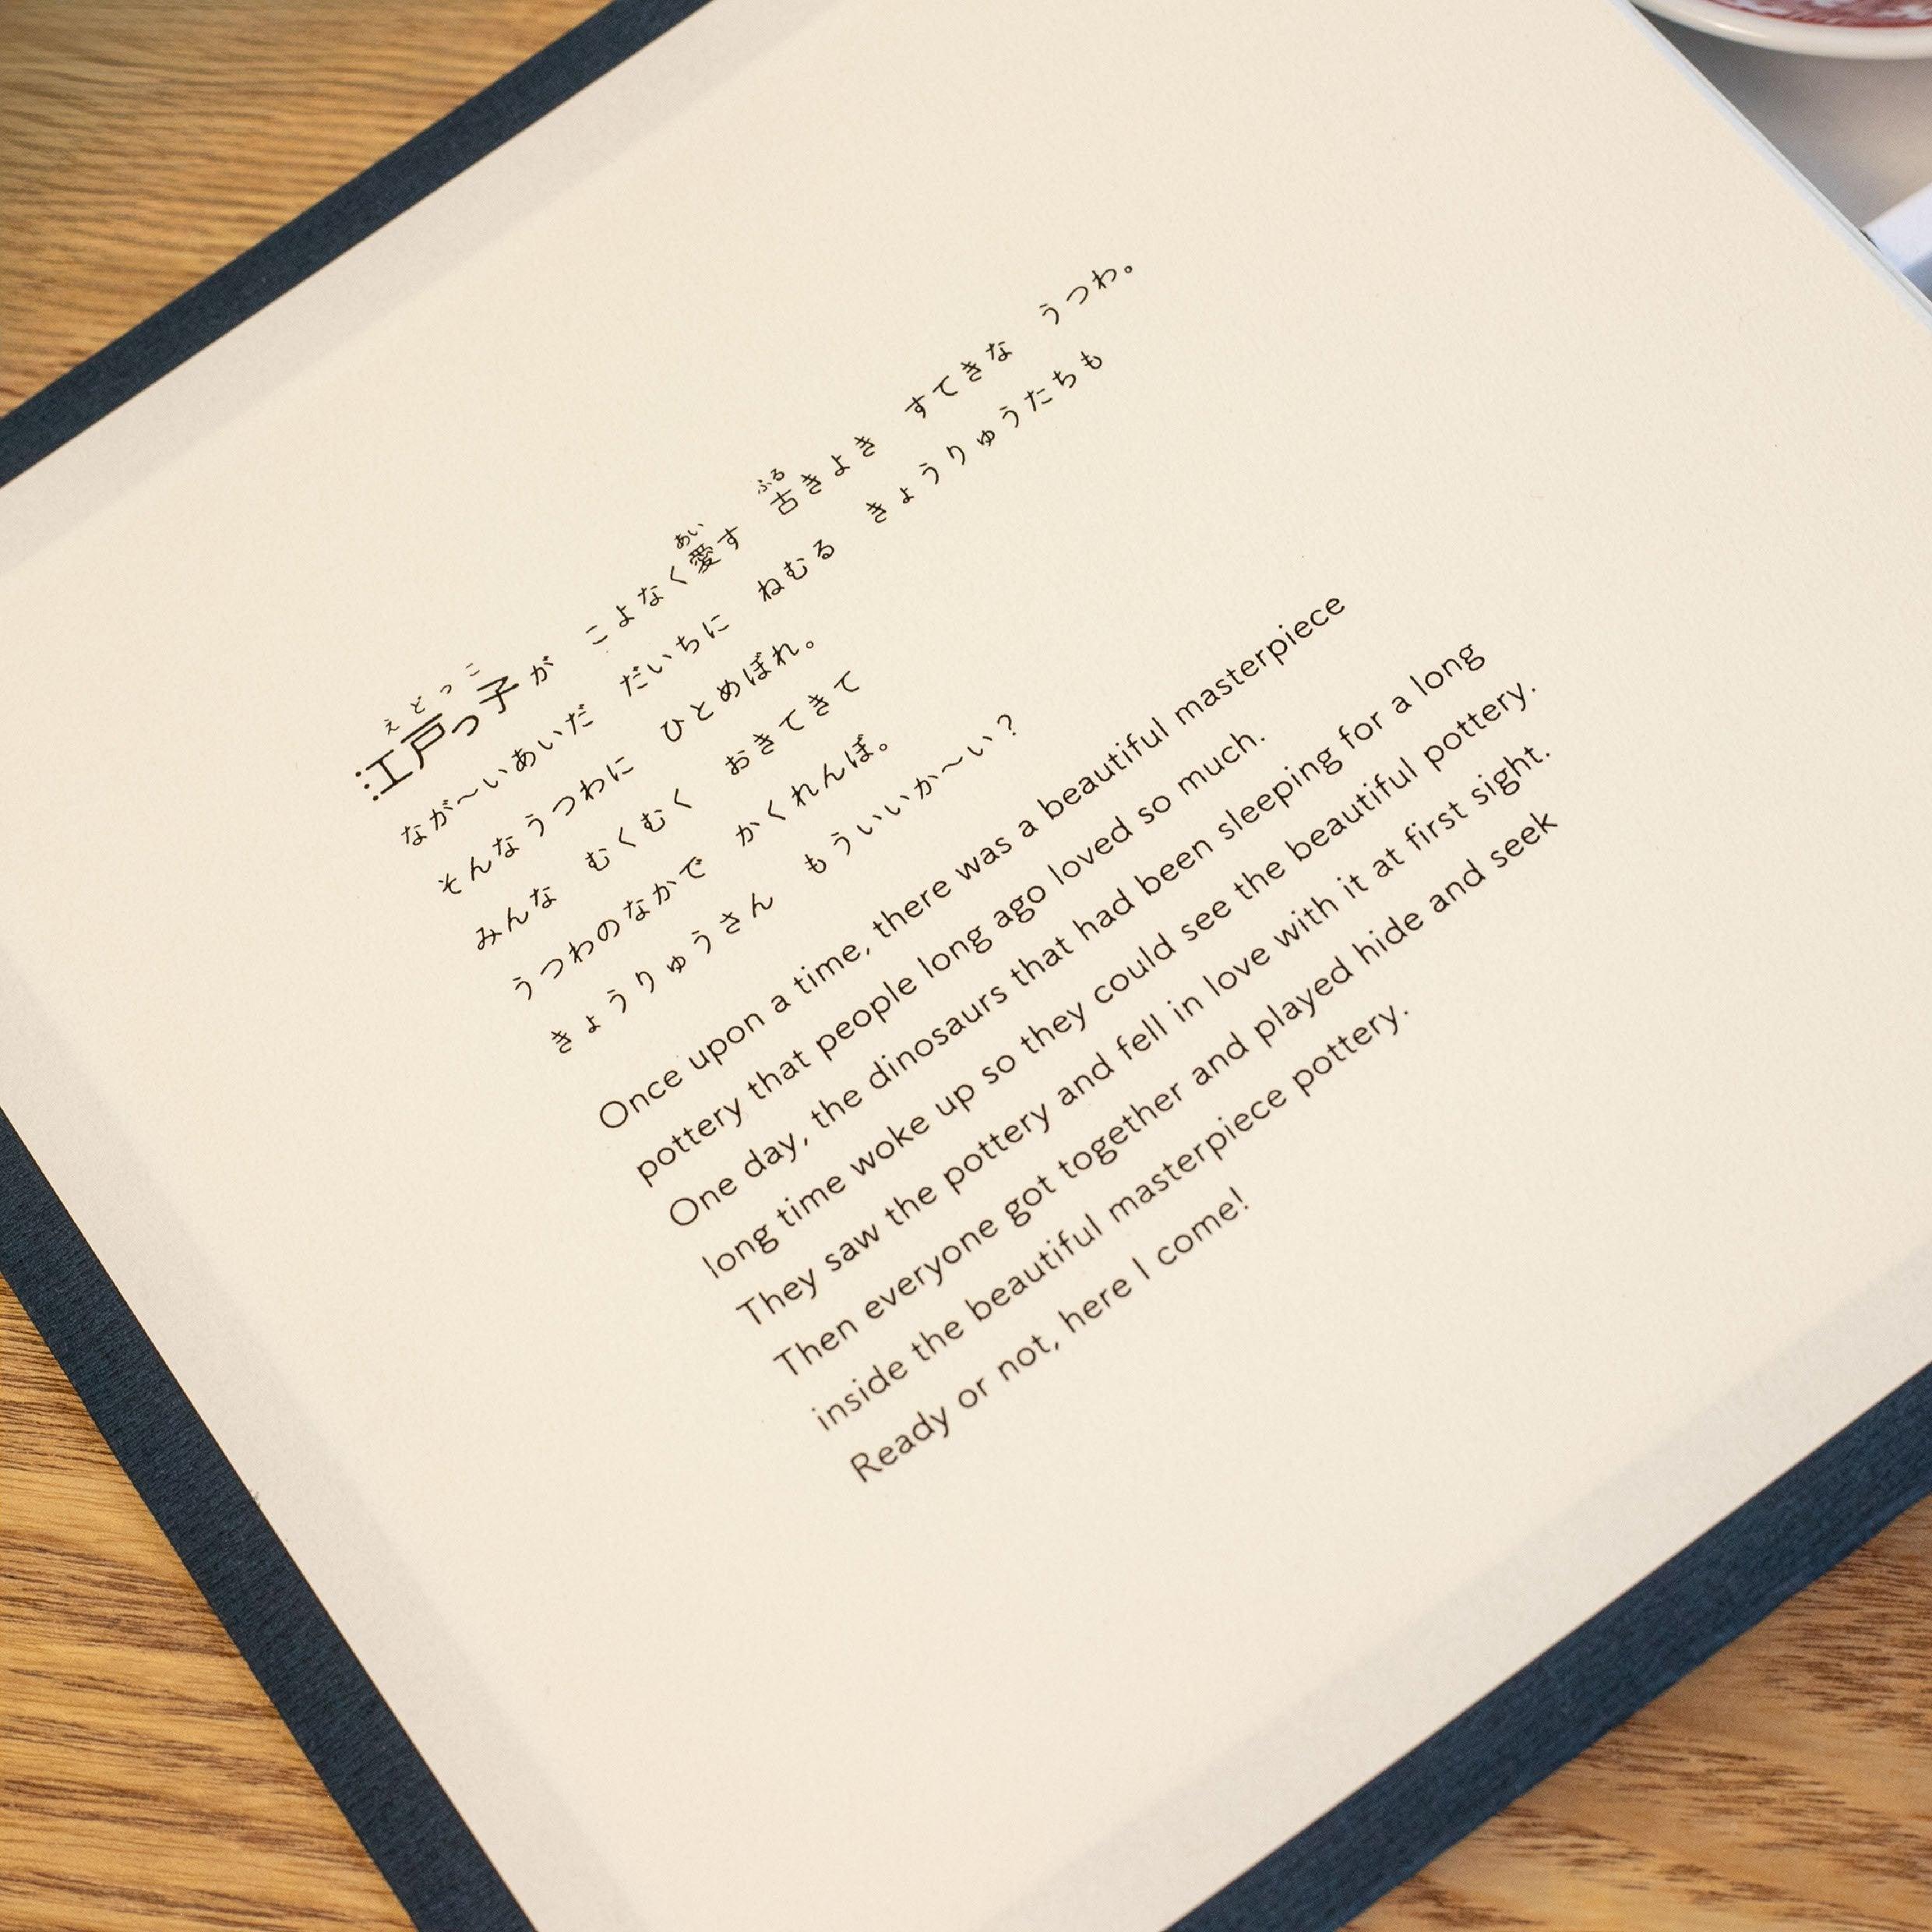 江戸っ子が　こよなく愛す　古きよき　すてきな　うつわ。
なが〜いあいだ　だいちに　ねむる　きょうりゅうたちも
そんなうつわに　ひとめぼれ。
みんな　むくむく　おきてきて
うつわのなかで　かくれんぼ。
きょうりゅうさん　もういいか〜い？
Once upon a time, there was a beautiful masterpiece
pottery that people long ago loved so much.
One day, the dinosaurs that had been sleeping for a long
long time woke up so they could see the beautiful pottery.
They saw the pottery and fell in love with it at first sight.
Then everyone got together and played hide and seek
inside the beautiful masterpiece pottery.
Ready or not, here I come!